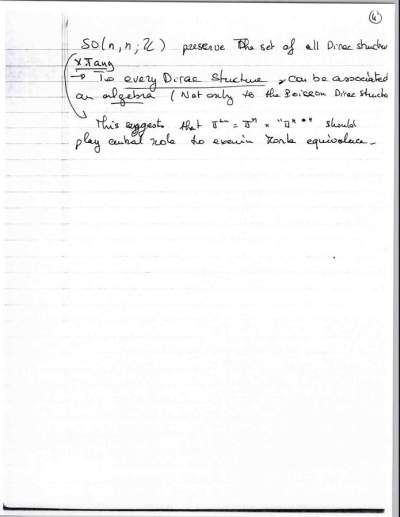 4
SO(n,n; Z) preserve the set of all Dirac structur
X Tang
→ To every Dirac Structure, can be associated
an algebra ( Not only to the Poisson Dirac Structu
This suggests that T²ⁿ = Tⁿ × "Tⁿ*" should
play role to Morita equivalence.